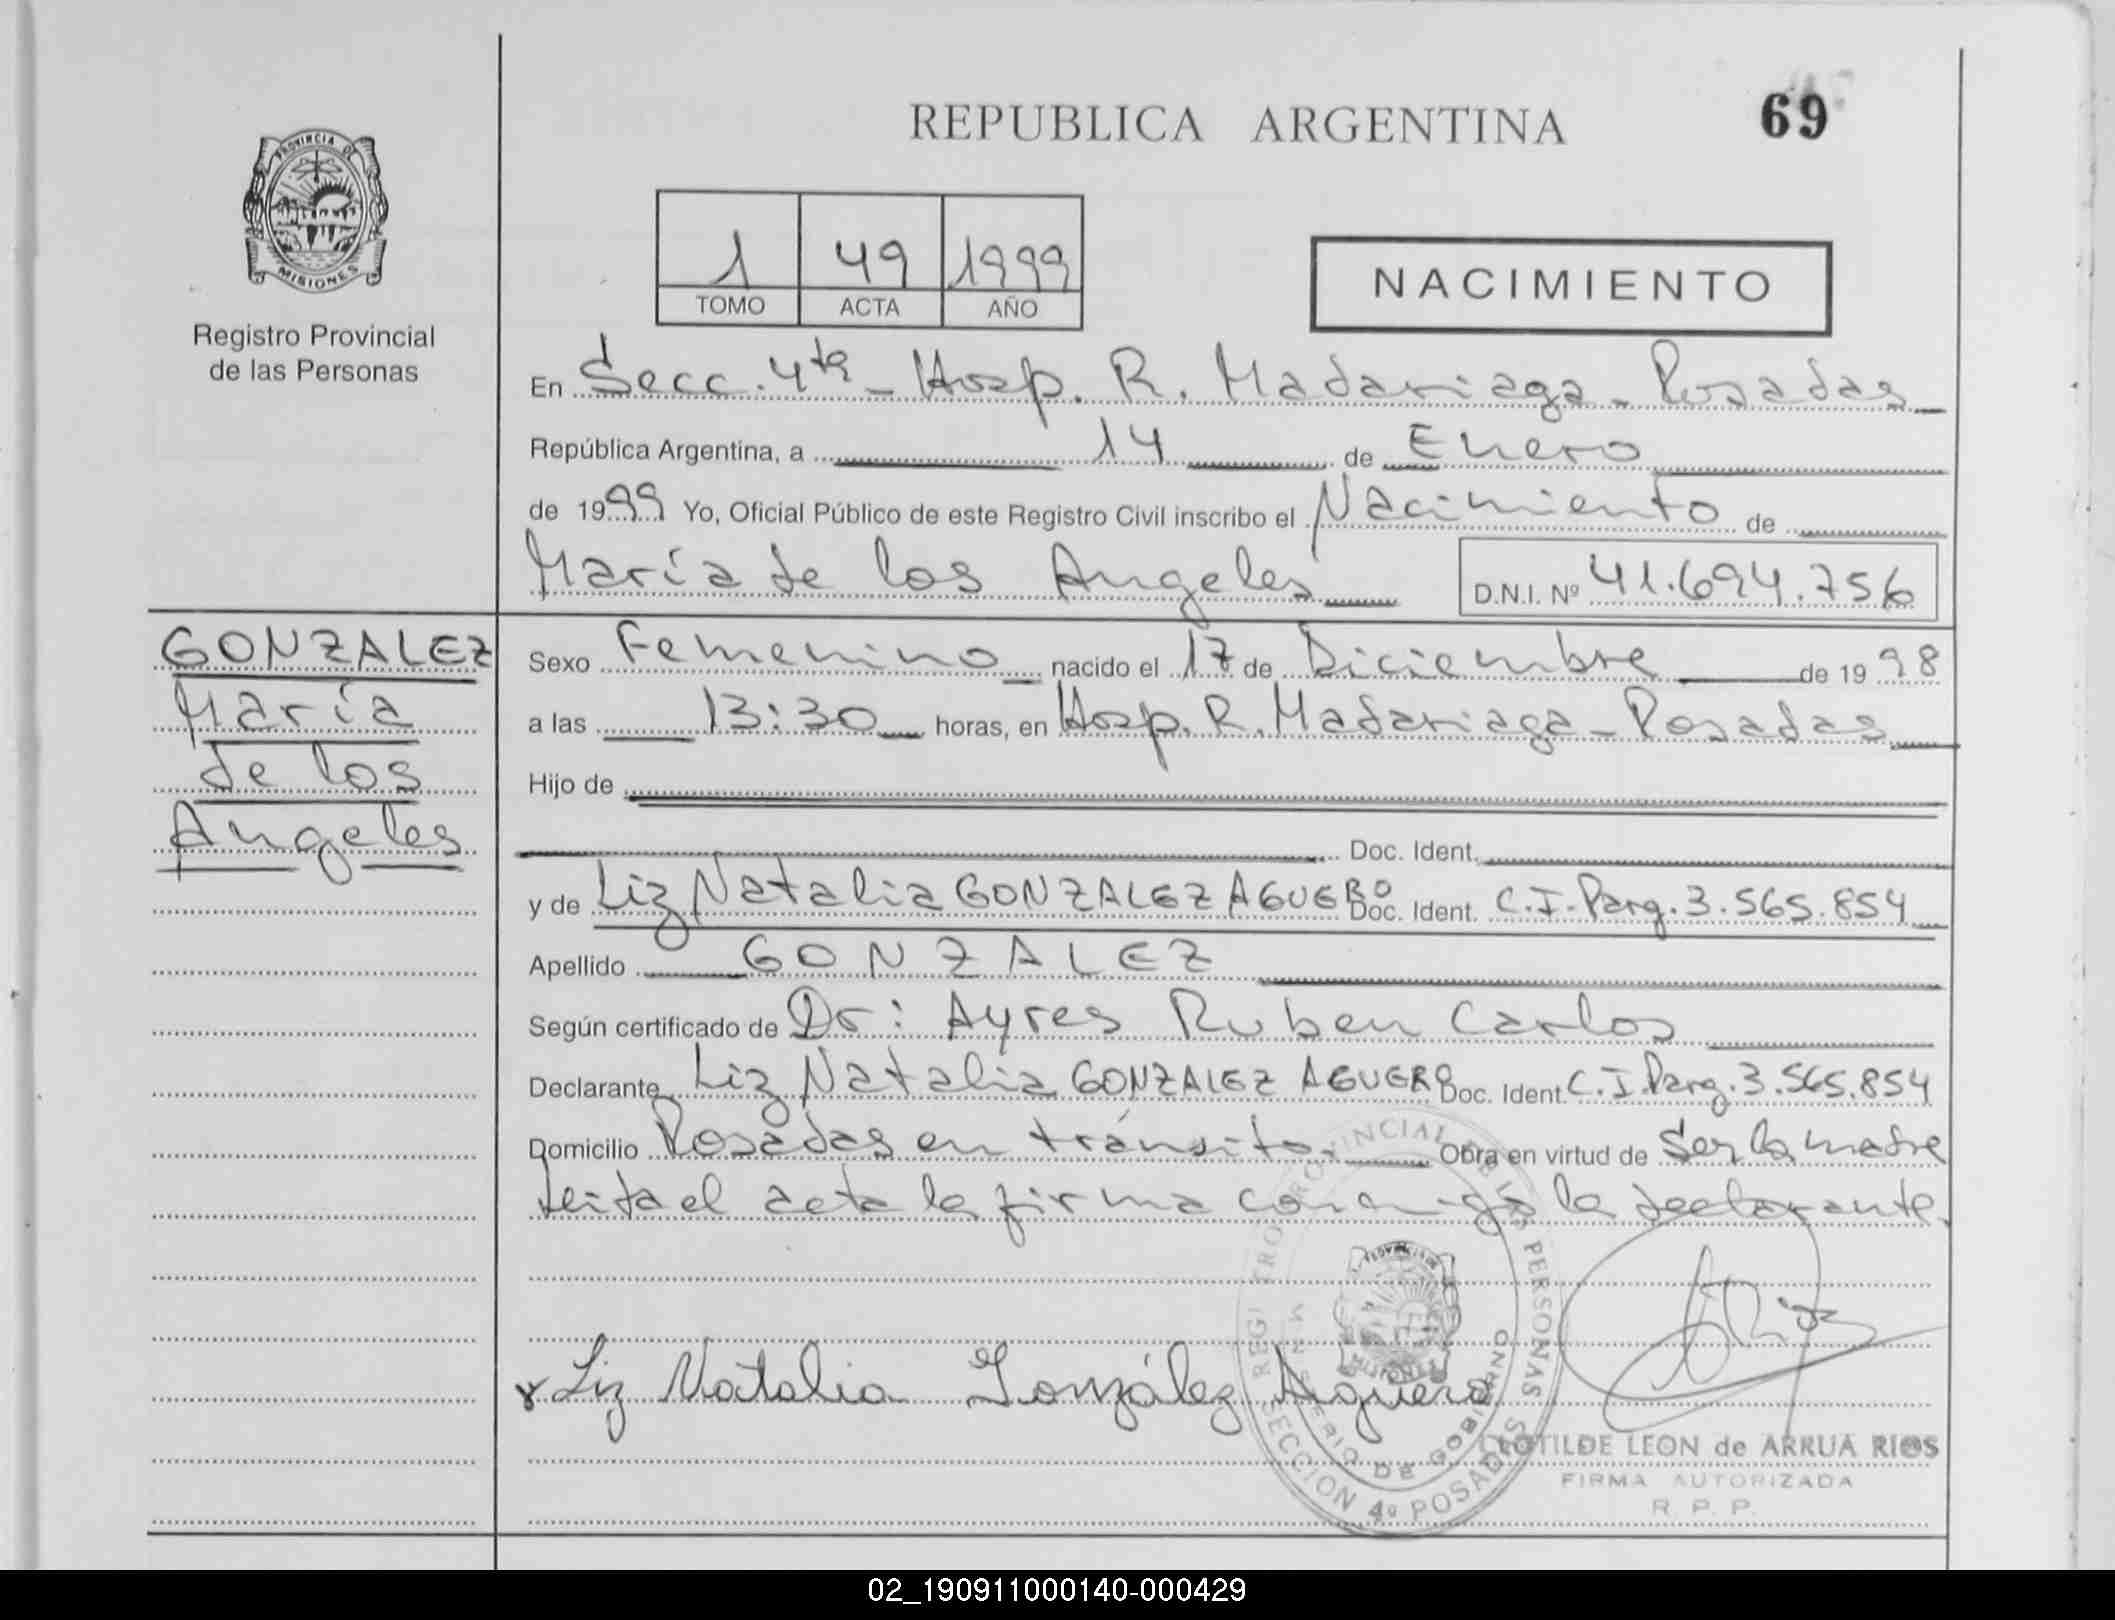 REPUBLICA ARGENTINA
69
PROVINCIA DE
MISIONES
Registro Provincial
de las Personas
1 49 1999
TOMO ACTA AÑO
NACIMIENTO
En Secc. 4ta - Hosp. R. Madariaga - Posadas
República Argentina, a 14 de Enero
de 1999 Yo, Oficial Público de este Registro Civil inscribo el Nacimiento de
María de los Angeles D.N.I. Nº 41.694.756
GONZALEZ
María
de los
Angeles
Sexo Femenino nacido el 17 de Diciembre de 1998
a las 13:30 horas, en Hosp. R. Madariaga - Posadas
Hijo de
Doc. Ident.
y de Liz Natalia GONZALEZ AGUERO Doc. Ident. C.I. Parg. 3.565.854
Apellido GONZALEZ
Según certificado de Dr: Ayres Ruben Carlos
Declarante Liz Natalia GONZALEZ AGUERO Doc. Ident. C.I. Parg. 3.565.854
Domicilio Posadas en tránsito. Obra en virtud de Ser la madre
leida el acta la firma conmigo la declarante.
Liz Natalia González Aguero
REGISTRO PROVINCIAL DE LAS PERSONAS
MINISTERIO DE GOBIERNO
SECCION 4º POSADAS
CLOTILDE LEON de ARRUA RIOS
FIRMA AUTORIZADA
R. P. P.
02_190911000140-000429